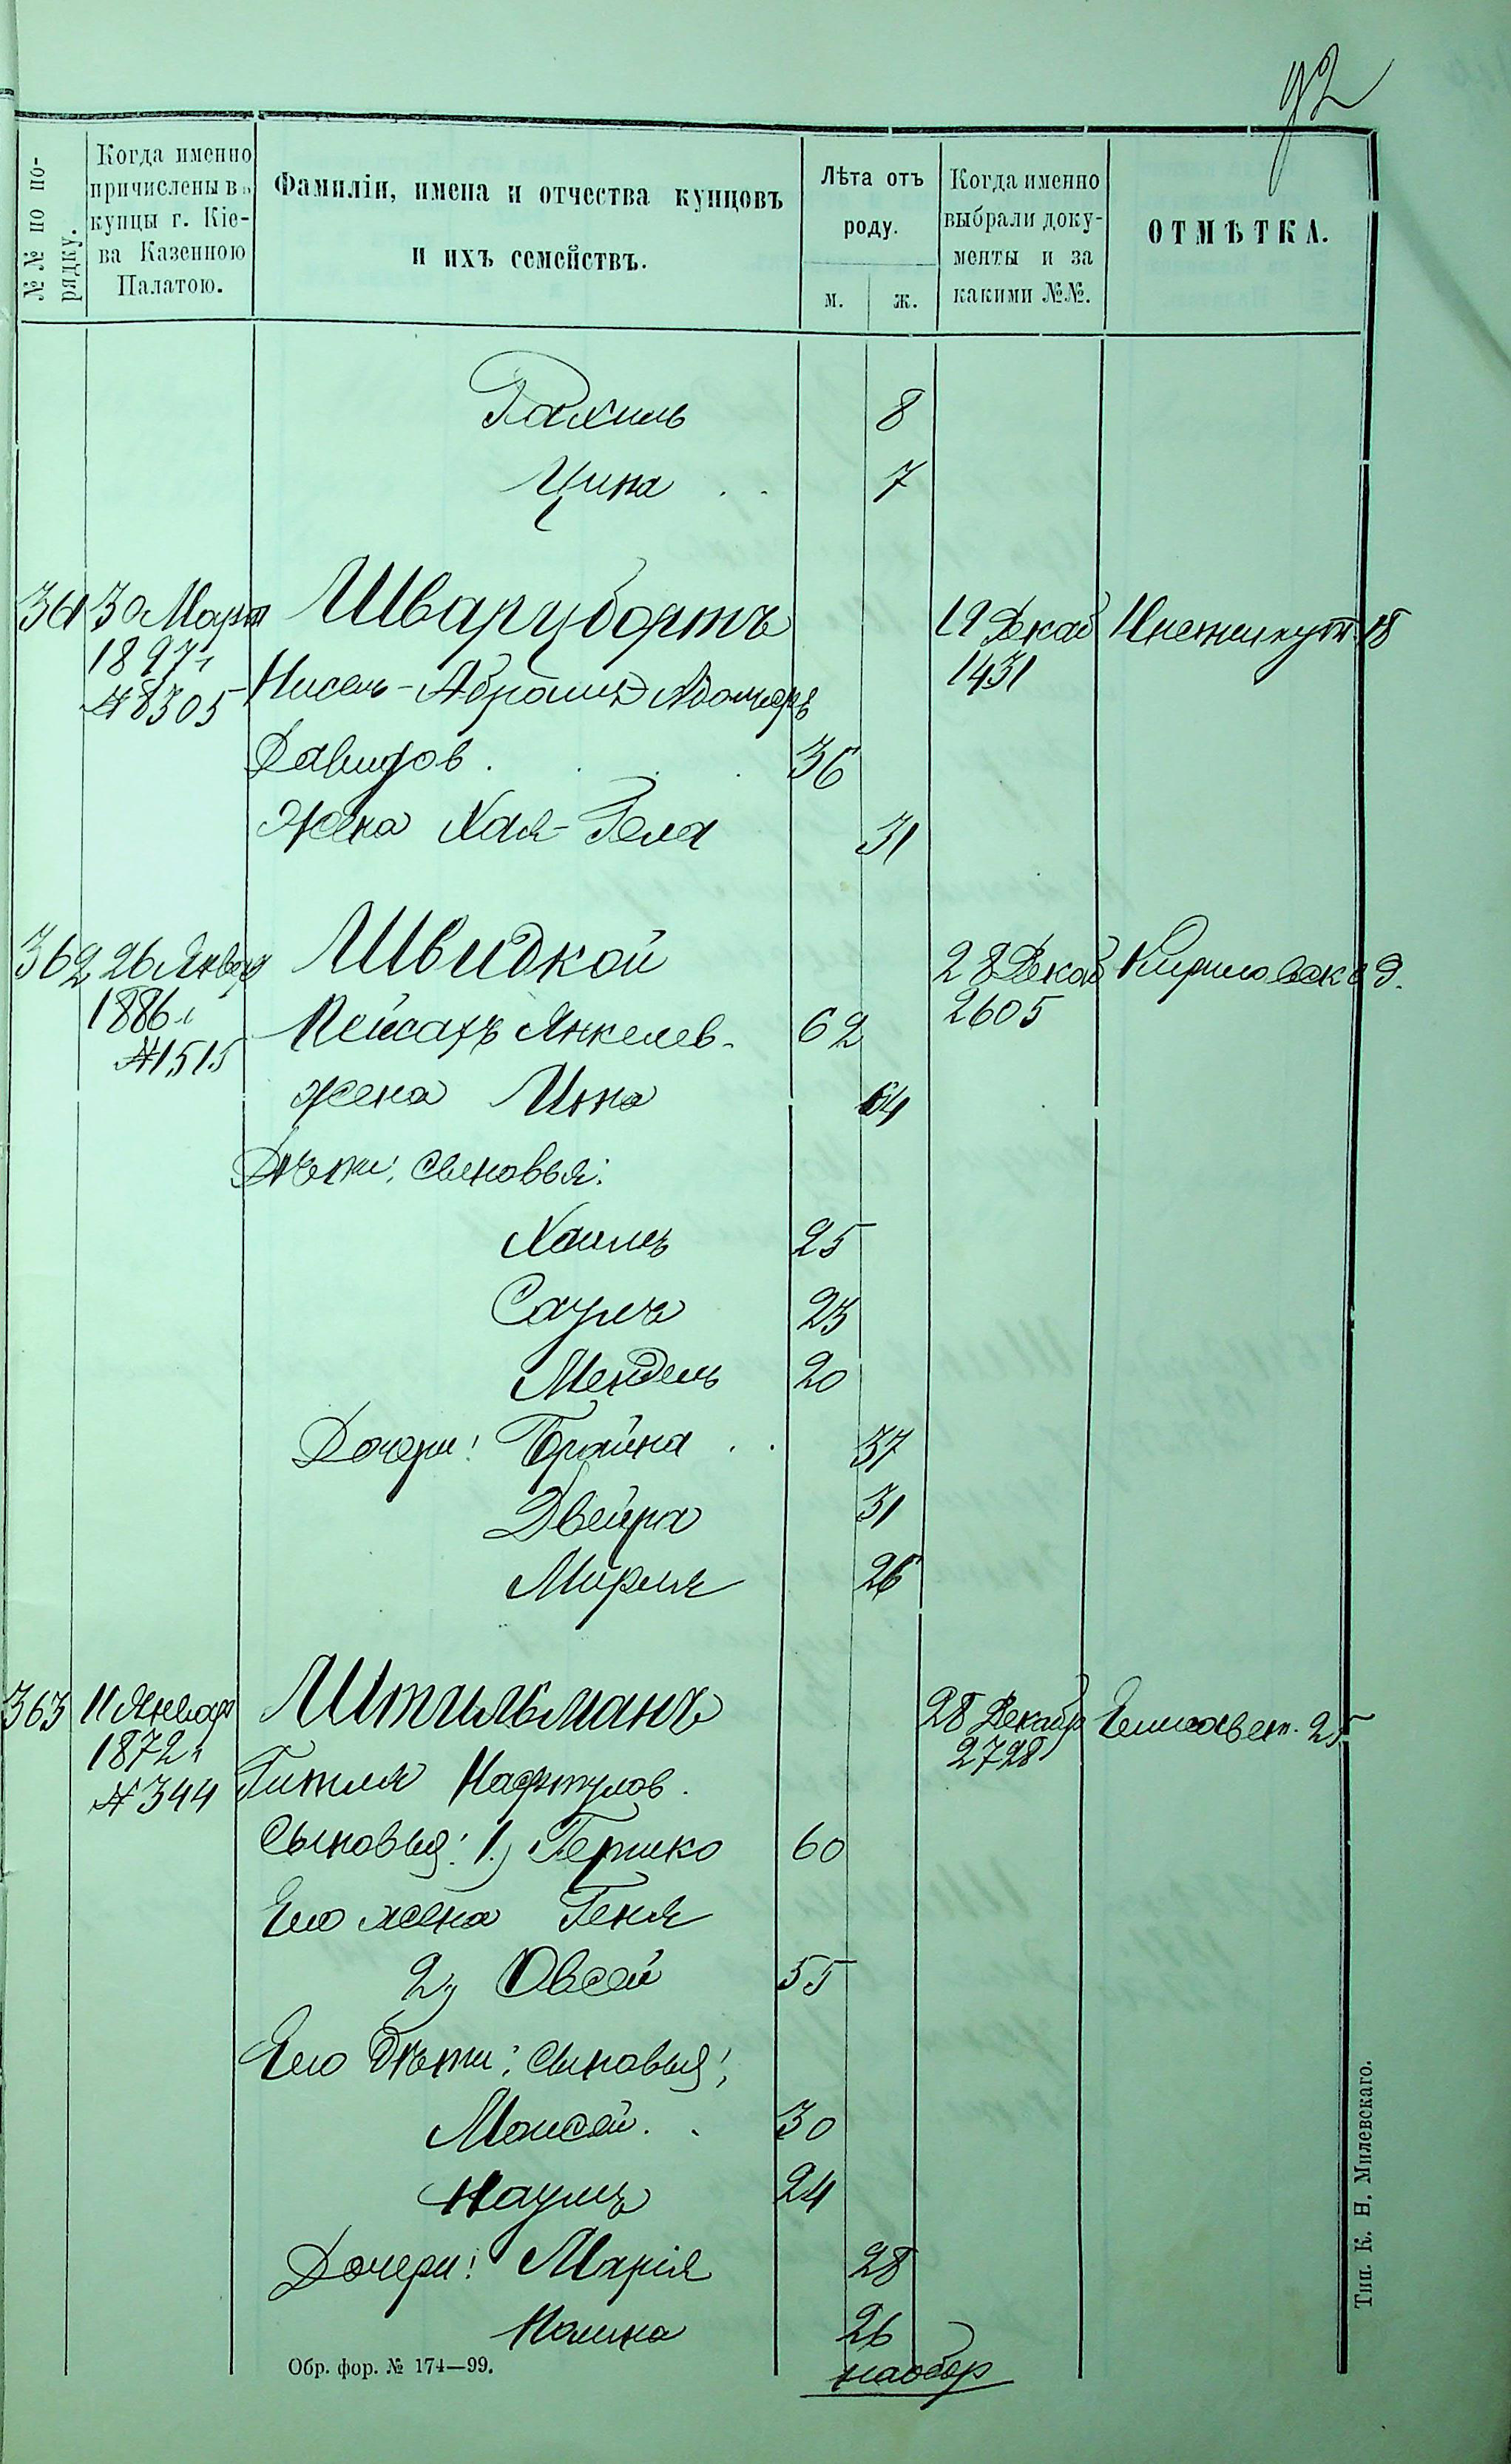 92
№№ по по-
рядку.
Когда именно
причислены въ
купцы г. Кіе-
ва Казенною
Палатою.
Фамиліи, имена и отчества купцовъ
и ихъ семействъ.
Лѣта отъ
роду.
м. ж.
Когда именно
выбрали доку-
менты и за
какими №№.
ОТМѢТКА.
Рахиль 8
Цина 7
361 30 Март Шварцбортъ 19 Декаб
1897 г. Нисель-Абрамъ 1431
№ 8305
Давидов. 36
Жена Хая- 31
362 26 Январ Швидкой 28 Декаб Кириловск 9.
1886 г. Пейсахъ Янкелев. 62 2605
№ 1515
жена Инна 64
Дѣти: сыновья:
Хаимъ 25
Саулъ 23
Мендель 20
Дочери: Брайна 37
Двейра 31
Мирля 26
363 11 Январ Штильманъ 28 Декабр Елисавет. 25
1872 г. 2728
№ 344 Гитля Нафтулов.
Сыновья: 1.) Гершко 60
Его жена Геня
2) Овсей 55
Его дѣти: сыновья:
Моисей. 30
Наумъ 24
Дочери: Марія 28
Полина 26
наобор
Обр. фор. № 174—99.
Тип. К. Н. Милевскаго.